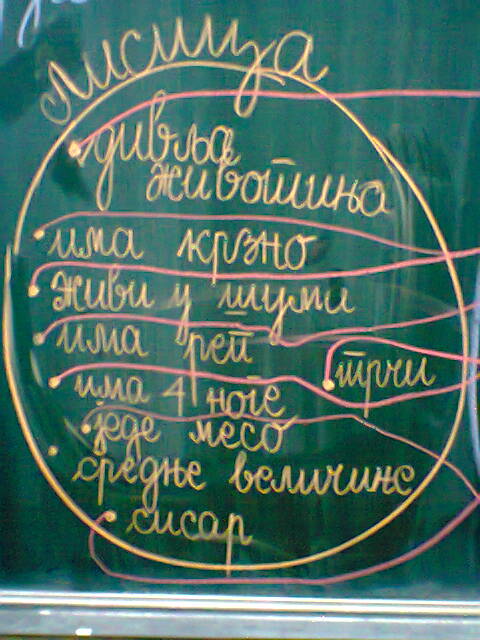 лисица
дивља
животиња
има крзно
живи у шуми
има реп
трчи
има 4 ноге
једе месо
средње величине
сисар